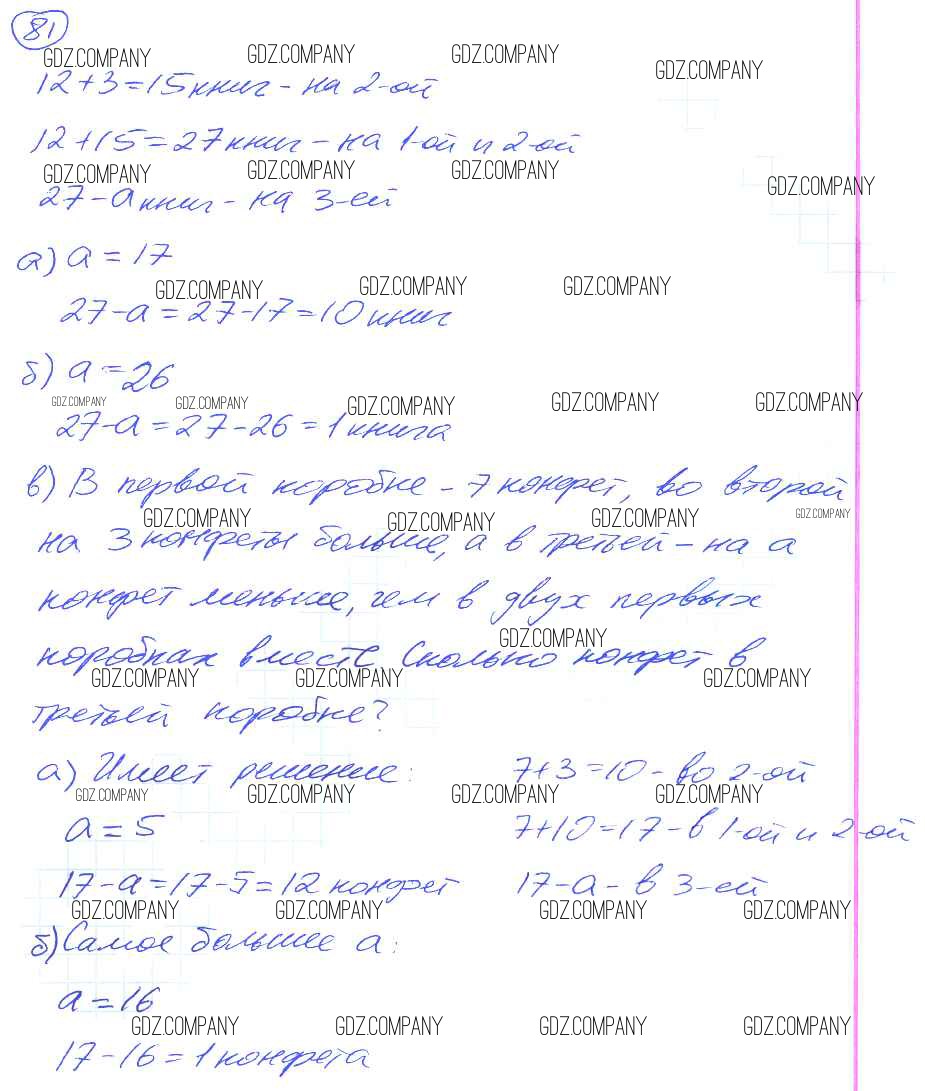 81
GDZ.COMPANY GDZ.COMPANY GDZ.COMPANY GDZ.COMPANY
12+3=15книг - на 2-ой
12+15=27книг - на 1-ой и 2-ой
GDZ.COMPANY GDZ.COMPANY GDZ.COMPANY GDZ.COMPANY
27-а книг - на 3-ей
а) а = 17
GDZ.COMPANY GDZ.COMPANY GDZ.COMPANY
27-а = 27-17=10книг
б) а = 26
GDZ.COMPANY GDZ.COMPANY GDZ.COMPANY GDZ.COMPANY GDZ.COMPANY
27-а = 27-26 = 1книга
в) В первой коробке - 7 конфет, во второй
GDZ.COMPANY GDZ.COMPANY GDZ.COMPANY GDZ.COMPANY
на 3 конфеты больше, а в третьей - на а
конфет меньше, чем в двух первых
GDZ.COMPANY
коробках вместе. Сколько конфет в
GDZ.COMPANY GDZ.COMPANY GDZ.COMPANY
третьей коробке?
а) Имеет решение: 7+3=10 - во 2-ой
GDZ.COMPANY GDZ.COMPANY GDZ.COMPANY GDZ.COMPANY
а = 5 7+10=17 - в 1-ой и 2-ой
17-а=17-5=12 конфет 17-а - в 3-ей
GDZ.COMPANY GDZ.COMPANY GDZ.COMPANY GDZ.COMPANY
б) Самое большее а:
а = 16
GDZ.COMPANY GDZ.COMPANY GDZ.COMPANY GDZ.COMPANY
17-16 = 1 конфета